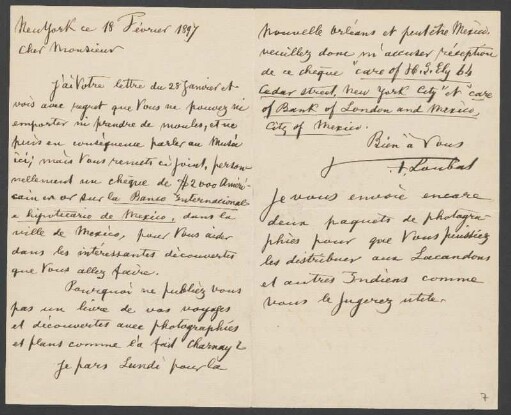 New York ce 18 Février 1897
Cher Monsieur
J'ai Votre lettre du 28 Janvier et
vois avec regret que Vous ne pouvez ni
emporter ni prendre de moules, et ne
puis en conséquence parler au Musée
ici; mais Vous remets ci joint, person
nellement un chèque de $200 Améri-
cain en or sur la Banco International
e hipotecario de Mexico, dans la
ville de Mexico, pour Vous aider
dans les intéressantes découvertes
que Vous allez faire.
Pourquoi ne publiez vous
pas un livre de vos voyages
et découvertes avec photographies
et plans comme l'a fait Charnay?
Je pars Lundi pour la
Nouvelle Orléans et peut être Mexico.
veuillez donc m'accuser réception
de ce chèque "care of H. S. Ely 64
Cedar street, New York City" et "care
of Bank of London and Mexico,
City of Mexico.
Bien à Vous
Loubat
Je vous envoie encore
deux paquets de photogra-
phies pour que Vous puissiez
les distribuer aux Lacandons
et autres Indiens comme
vous le jugerez utile.
7